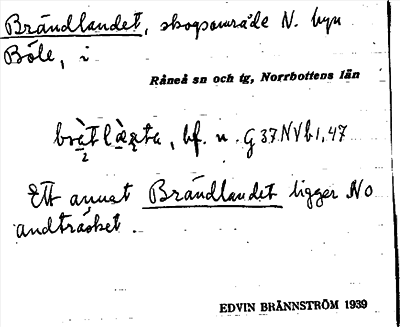 Brändlandet, skogsområde N. byn
Böle, i
Råneå sn och tg, Norrbottens län
bf. n. G 37 NV b 1, 47
Ett annat Brändlandet ligger NO
andträsket.
EDVIN BRÄNNSTRÖM 1939